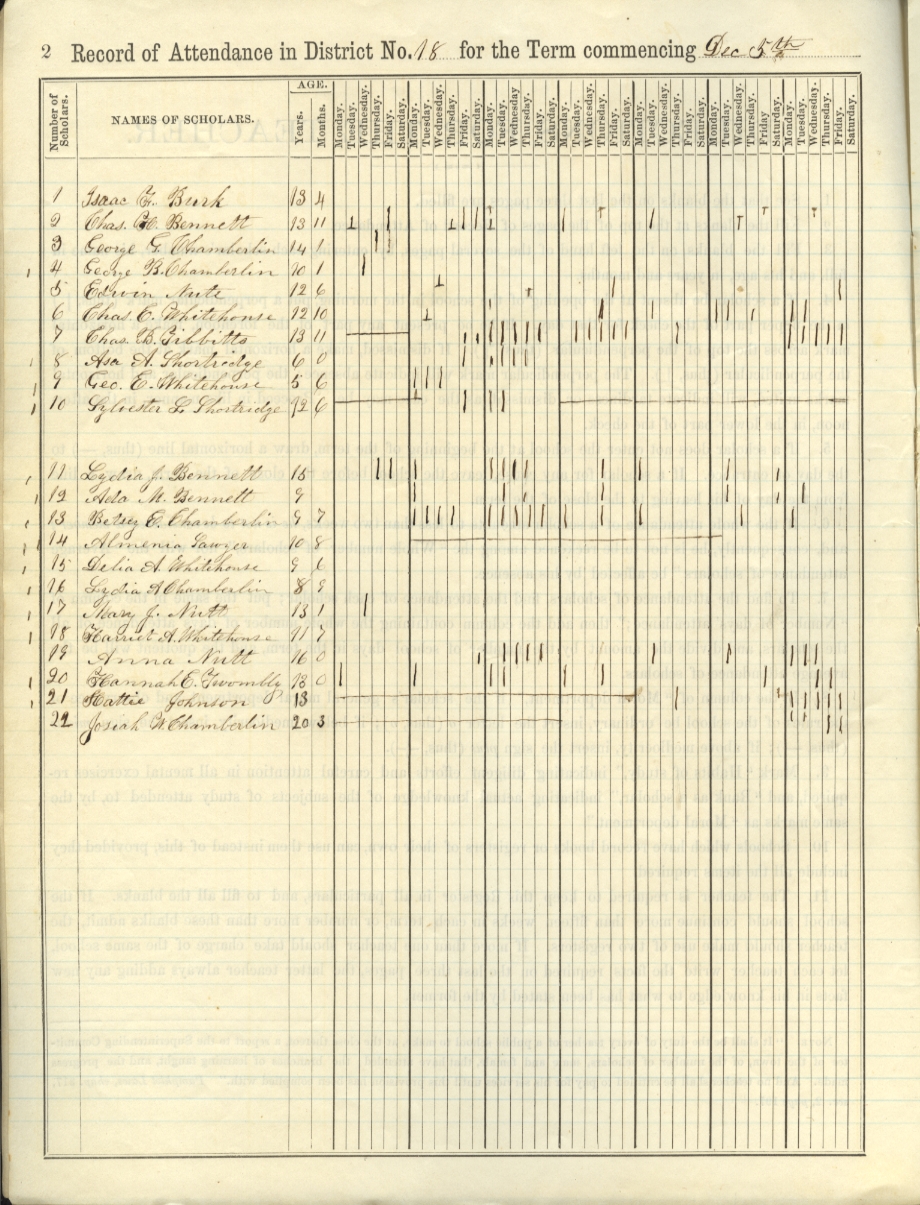 2 Record of Attendance in District No. 18 for the Term commencing Dec 5th
Number of Scholars.
NAMES OF SCHOLARS.
AGE.
Years. Months.
Monday. Tuesday. Wednesday. Thursday. Friday. Saturday. Monday. Tuesday. Wednesday. Thursday. Friday. Saturday. Monday. Tuesday. Wednesday Thursday. Friday. Saturday. Monday. Tuesday. Wednesday. Thursday. Friday. Saturday. Monday. Tuesday. Wednesday. Thursday. Friday. Saturday. Monday. Tuesday. Wednesday. Thursday. Friday Saturday. Monday. Tuesday. Wednesday. Thursday. Friday. Saturday.
1 Isaac G. Burk 13 4
2 Chas. H. Bennett 13 11
3 George G. Chamberlin 14 1
4 George B. Chamberlin 10 1
5 Edwin Nute 12 6
6 Chas. E. Whitehouse 12 10
7 Chas. B. Tibbitts 13 11
8 Asa A. Shortridge 6 0
9 Geo. E. Whitehouse 5 6
10 Sylvester L. Shortridge 12 6
11 Lydia J. Bennett 15
12 Ada M. Bennett 9
13 Betsey E. Chamberlin 9 7
14 Almenia Sawyer 10 8
15 Delia A. Whitehouse 9 6
16 Lydia A Chamberlin 8 9
17 Mary J. Nutt 13 1
18 Harriet A. Whitehouse 11 7
19 Anna Nutt 16 0
20 Hannah E. Twombly 18 0
21 Hattie Johnson 13
22 Josiah W. Chamberlin 20 3